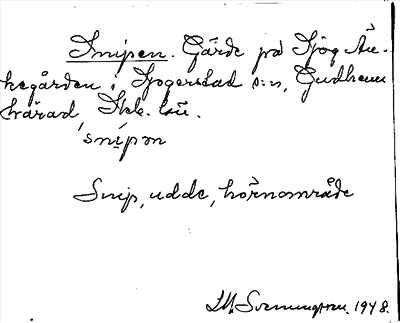 Snipen. Gärde på Sjög. Än-
kegården i Sjogerstad s:n, Gudhems
härad, Skb. län.
'snípɘn
Snip, udde, hörnområde
Svenungsson. 1948.